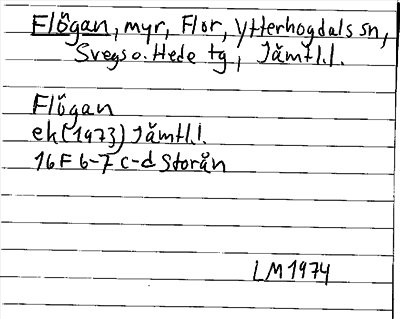 Flögan, myr, Flor, Ytterhogdals sn,
Svegs o. Hede tg, Jämtl.l.
Flögan
ek (1973) Jämtl.l.
16F 6-7 c-d Storån
LM 1974